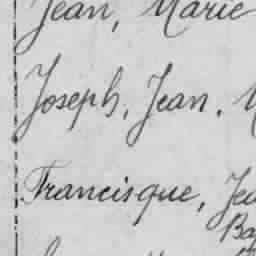 Jean, Marie
Joseph, Jean.
Francisque,